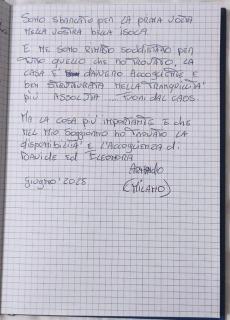 Sono sbarcato per la prima volta
nella vostra bella isola.
E ne sono rimasto soddisfatto per
tutto quello che ho trovato, la
casa è davvero accogliente e
ben strutturata nella tranquillità
più assoluta .... fuori dal caos
Ma la cosa più importante è che
nel mio soggiorno ho trovato la
disponibilità e l'accoglienza di
Davide ed Eleonora
Armando
Giugno 2025
(Milano)